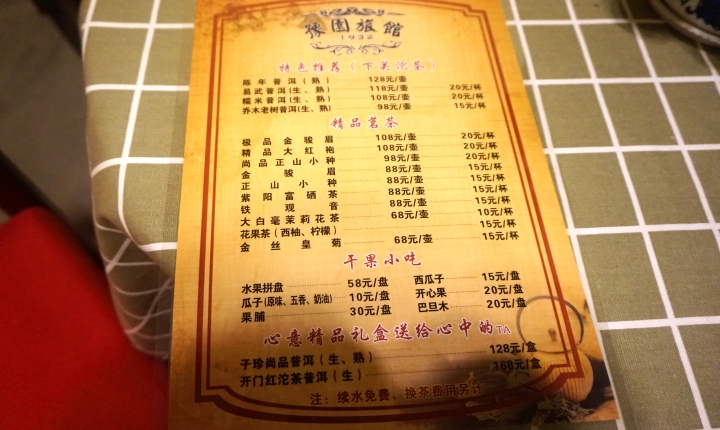 豫园旅館
1932
特色推荐（下关沱茶）
陈年普洱（熟） 128元/壶
易武普洱(生、熟) 118元/壶 20元/杯
糯米普洱(生、熟) 108元/壶 20元/杯
乔木老树普洱(生、熟) 98元/壶 15元/杯
精品茗茶
极品金骏眉 108元/壶 20元/杯
精品大红袍 108元/壶 20元/杯
尚品正山小种 98元/壶 20元/杯
金骏眉 88元/壶 15元/杯
正山小种 88元/壶 15元/杯
紫阳富硒茶 88元/壶 15元/杯
铁观音 88元/壶 15元/杯
大白毫茉莉花茶 68元/壶 10元/杯
花果茶（西柚、柠檬） 15元/杯
金丝皇菊 68元/壶 15元/杯
干果小吃
水果拼盘 58元/盘 西瓜子 15元/盘
瓜子(原味、五香、奶油) 10元/盘 开心果 20元/盘
果脯 30元/盘 巴旦木 20元/盘
心意精品礼盒送给心中的TA
子珍尚品普洱（生、熟） 128元/盒
开门红沱茶普洱（生） 168元/盒
注：续水免费、换茶费用另计